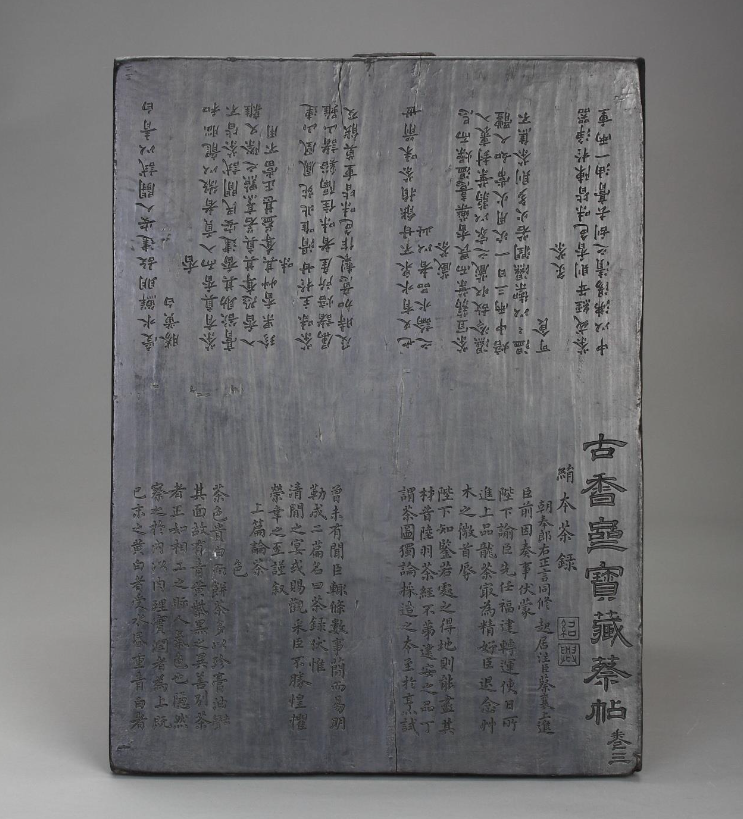 古香齋寶藏蔡帖 卷三
絹本茶錄
朝奉郎右正言同修起居注臣蔡襄上進
紹興
臣前因奏事伏蒙
陛下諭臣先任福建轉運使日所
進上品龍茶最為精好臣退念艸
木之微首辱
陛下知鑒若處之得地則能盡其
材昔陸羽茶經不第建安之品丁
謂茶圖獨論採造之本至於烹試
曾未有聞臣輒條數事簡而易明
勒成二篇名曰茶錄伏惟
清閒之宴或賜觀采臣不勝惶懼
榮幸之至謹叙
上篇論茶
色
茶色貴白而餅茶多以珍膏油
其面故有青黃紫黑之異善別茶
者正如相工之人氣色也隱然
察之於內以肉理實潤者為上既
已末之黃白者受水昏重青白者
受水鮮明故建安人鬭試以青白
勝黃白
香
茶有真香而入貢者微以龍腦和
膏欲助其香建安民間試茶皆不
入香恐奪其真若烹點之際又雜
珍果香艸其奪益甚正當不用
味
茶味主於甘滑惟北苑鳳凰山連
屬諸焙所產者味佳隔溪諸山雖
及時加意製作色味皆重莫能及
也又有水泉不甘能損茶味前世
之論水品者以此
藏茶
茶宜蒻葉而畏香藥喜溫燥而忌
濕冷故收藏之家以蒻葉封裹入
焙中兩三日一次用火常如人體
溫〻以禦濕潤若火多則茶焦不
可食
炙茶
茶或經年則香色味皆陳於淨器
中以沸湯漬之刮去膏油一兩重